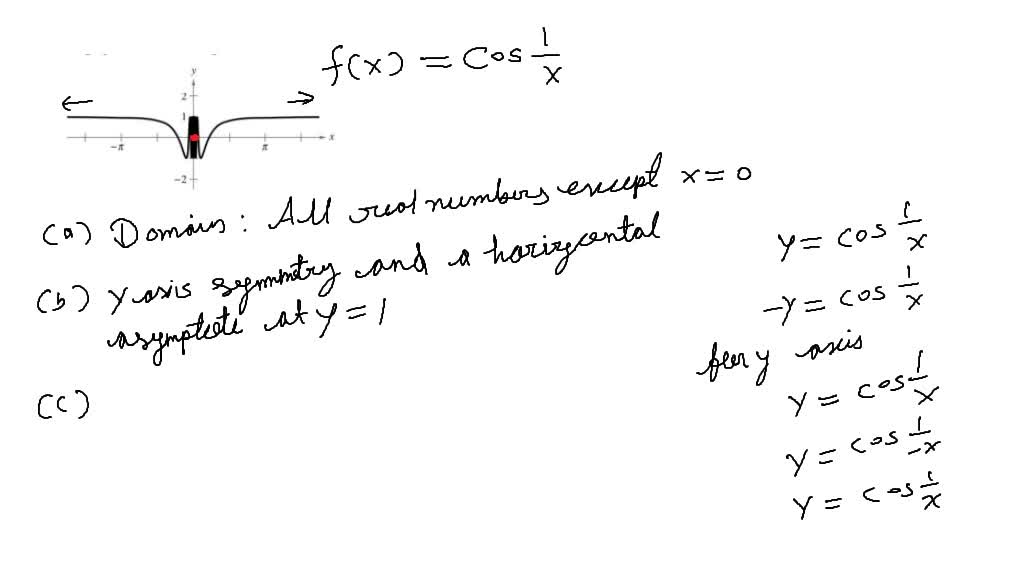 f(x) = Cos 1/x
y
2
1
-π
π
x
-2
(a) Domain: All real numbers except x = 0
(b) Y axis symmetry and a horizontal
asymptote at y = 1
(c)
y = cos 1/x
-y = cos 1/x
for y axis
y = cos 1/x
y = cos 1/-x
y = cos 1/x